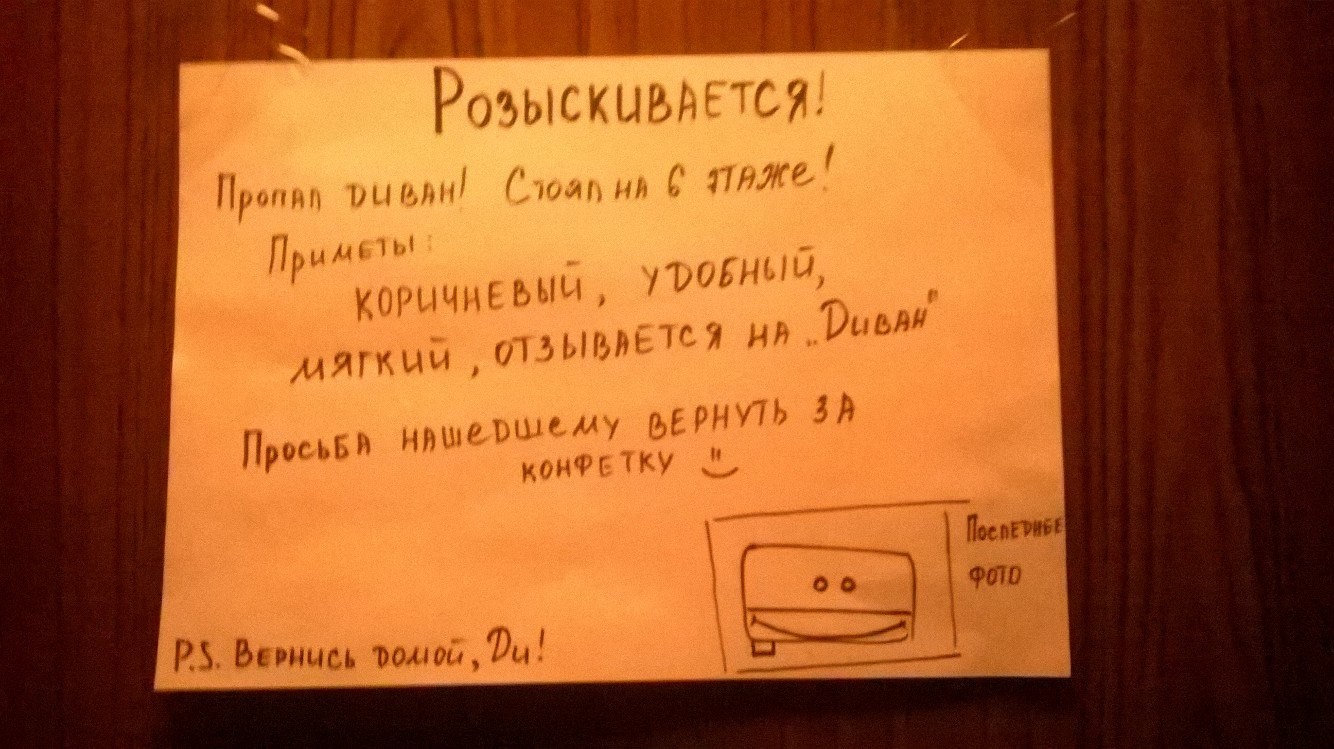 Розыскивается!
Пропал диван! Стоял на 6 этаже!
Приметы:
коричневый, удобный,
мягкий, отзывается на „Диван"
Просьба нашедшему вернуть за
конфетку
Последнее
фото
P.S. Вернись домой, Ди!